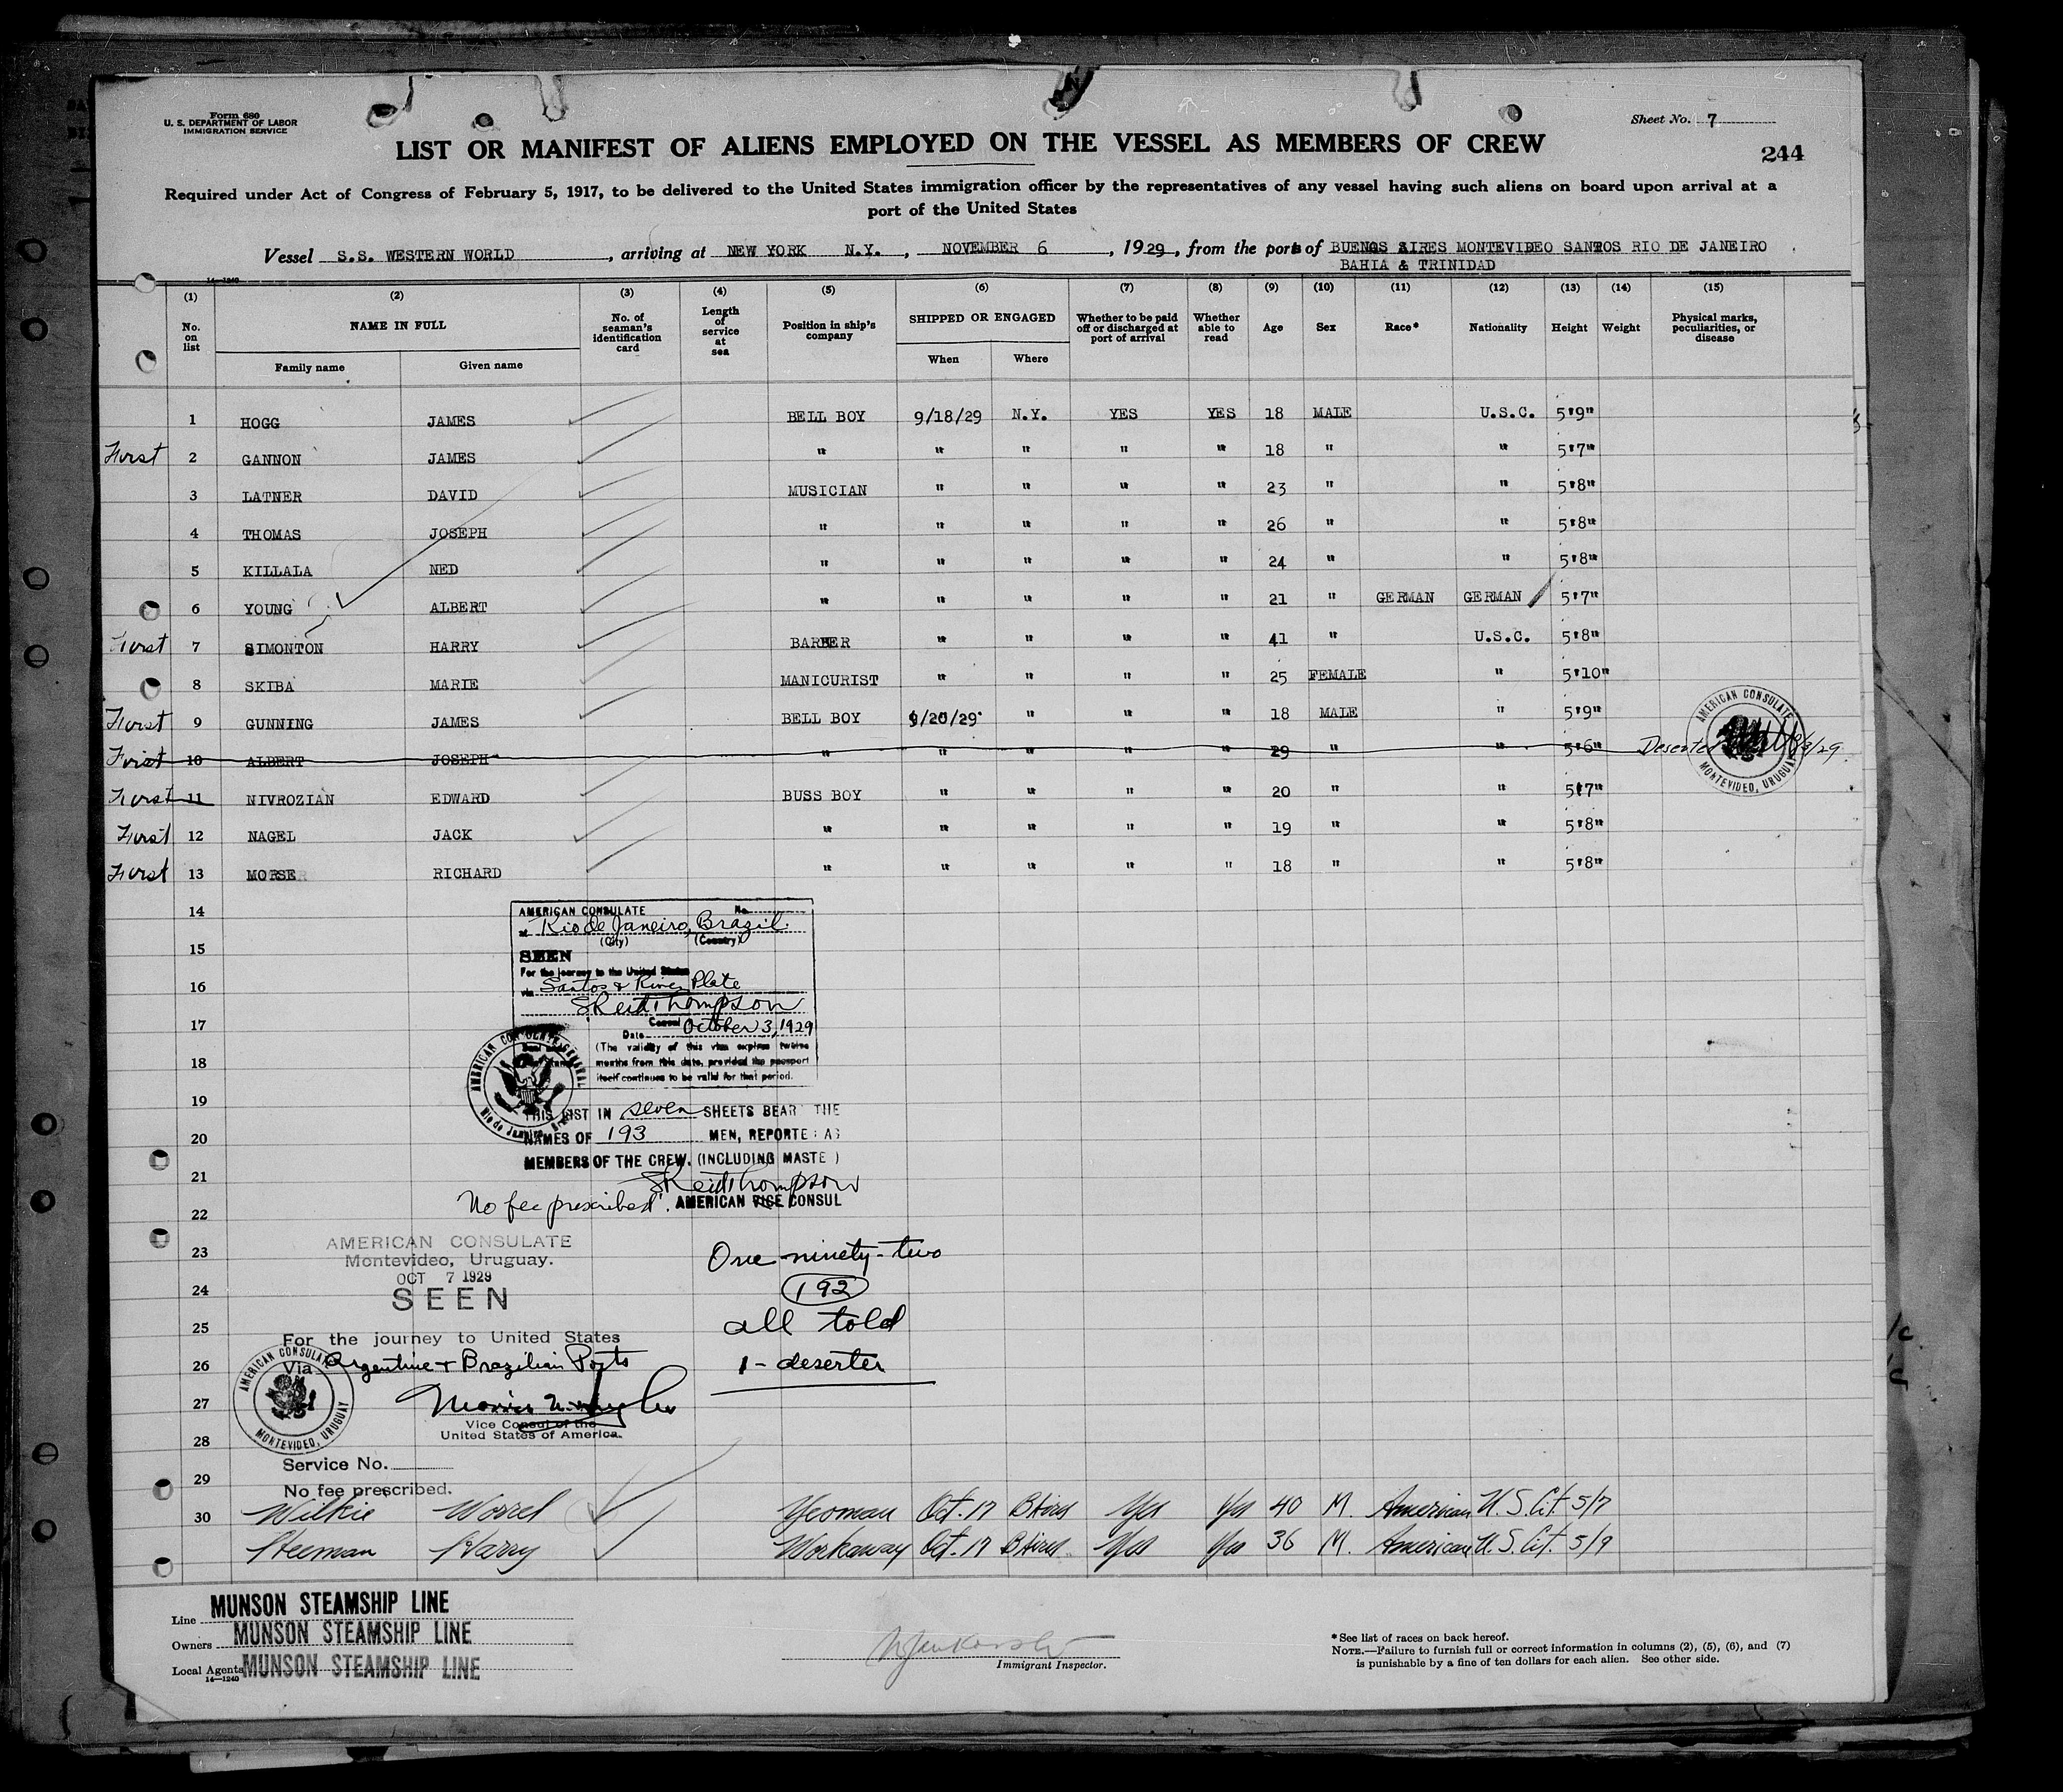 Form 680
U. S. DEPARTMENT OF LABOR
IMMIGRATION SERVICE
Sheet No. 7
LIST OR MANIFEST OF ALIENS EMPLOYED ON THE VESSEL AS MEMBERS OF CREW
244
Required under Act of Congress of February 5, 1917, to be delivered to the United States immigration officer by the representatives of any vessel having such aliens on board upon arrival at a
port of the United States
Vessel S.S. WESTERN WORLD, arriving at NEW YORK N.Y., NOVEMBER 6, 1929, from the ports of BUENOS AIRES MONTEVIDEO SANTOS RIO DE JANEIRO
BAHIA & TRINIDAD
14—1240
(1) (2) (3) (4) (5) (6) (7) (8) (9) (10) (11) (12) (13) (14) (15)
No. on list
NAME IN FULL
Family name
Given name
No. of seaman's identification card
Length of service at sea
Position in ship's company
SHIPPED OR ENGAGED
When
Where
Whether to be paid off or discharged at port of arrival
Whether able to read
Age
Sex
Race*
Nationality
Height
Weight
Physical marks, peculiarities, or disease
1 HOGG JAMES BELL BOY 9/18/29 N.Y. YES YES 18 MALE U.S.C. 5'9"
First 2 GANNON JAMES " " " " " 18 " " 5'7"
3 LATNER DAVID MUSICIAN " " " " 23 " " 5'8"
4 THOMAS JOSEPH " " " " " 26 " " 5'8"
5 KILLALA NED " " " " " 24 " " 5'8"
6 YOUNG ALBERT " " " " " 21 " GERMAN GERMAN 5'7"
First 7 SIMONTON HARRY BARBER " " " " 41 " U.S.C. 5'8"
8 SKIBA MARIE MANICURIST " " " " 25 FEMALE " 5'10"
First 9 GUNNING JAMES BELL BOY 9/20/29 " " " 18 MALE " 5'9"
First 10 ALBERT JOSEPH " " " " " 29 " " 5'6" Deserted
First 11 NIVROZIAN EDWARD BUSS BOY " " " " 20 " " 5'7"
First 12 NAGEL JACK " " " " " 19 " " 5'8"
First 13 MORSE RICHARD " " " " " 18 " " 5'8"
AMERICAN CONSULATE
MONTEVIDEO, URUGUAY
14
15
16
17
18
19
20
21
22
23
24
25
26
27
28
29
30
AMERICAN CONSULATE No.
at Rio de Janeiro, Brazil.
(City) (Country)
SEEN
For the journey to the United States
via Santos & River Plate
S Reid Thompson
Consul
Date October 3, 1929
(The validity of this visa expires twelve
months from this date, provided the passport
itself continues to be valid for that period.
AMERICAN CONSULATE GENERAL
Rio de Janeiro, Brazil
THIS LIST IN seven SHEETS BEAR THE
NAMES OF 193 MEN, REPORTE AS
MEMBERS OF THE CREW. (INCLUDING MASTE )
S Reid Thompson
No fee prescribed. AMERICAN VICE CONSUL
AMERICAN CONSULATE
Montevideo, Uruguay.
OCT 7 1929
SEEN
For the journey to United States
Via Argentine & Brazilian Ports
Vice Consul of the
United States of America.
AMERICAN CONSULATE
MONTEVIDEO, URUGUAY
Service No.
No fee prescribed.
One ninety-two
192
all told
1 - deserter
Wilkie Worrel Yeoman Oct. 17 B Aires Yes Yes 40 M. American U.S. Cit. 5/7
Steeman Harry Workaway Oct. 17 B Aires Yes Yes 36 M. American U.S. Cit. 5/9
Line MUNSON STEAMSHIP LINE
Owners MUNSON STEAMSHIP LINE
Local Agents MUNSON STEAMSHIP LINE
14—1240
Immigrant Inspector.
*See list of races on back hereof.
NOTE.—Failure to furnish full or correct information in columns (2), (5), (6), and (7)
is punishable by a fine of ten dollars for each alien. See other side.